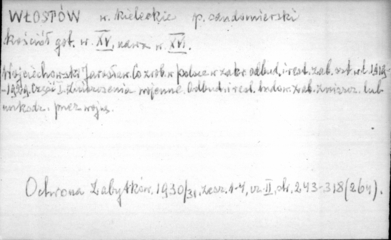 WŁOSTÓW w. kieleckie p. sandomierski
kościół got. w. XV, nawa w. XVI.
Wojciechowski Jarosław. Co zrob. w Polsce w zakr. odbud. i rest. zab. szt. od 1919-
-1929. Część I. Zniszczenia wojenne. Odbud. i rest. budow. zab. zniszcz. lub
uszkodz. przez wojnę.
Ochrona Zabytków. 1930/31, zesz. 1-4, cz. II, str. 243-318 (264).